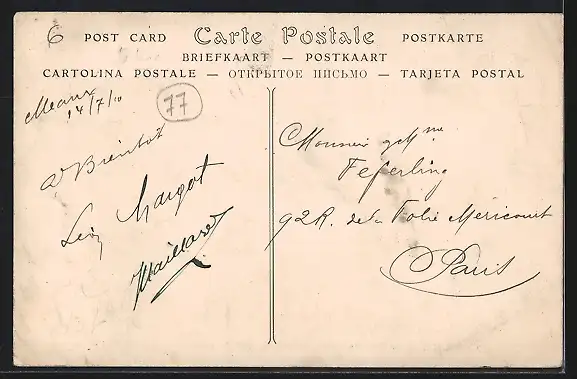 6
POST CARD Carte Postale POSTKARTE
BRIEFKAART — POSTKAART
CARTOLINA POSTALE — ОТКРЫТОЕ ПИСЬМО — TARJETA POSTAL
Meaux
14/7/10
77
A Bientot
Léon Margot
Maillard
Monsieur et Mme
Feferling
92 R. de la Folie Méricourt
Paris